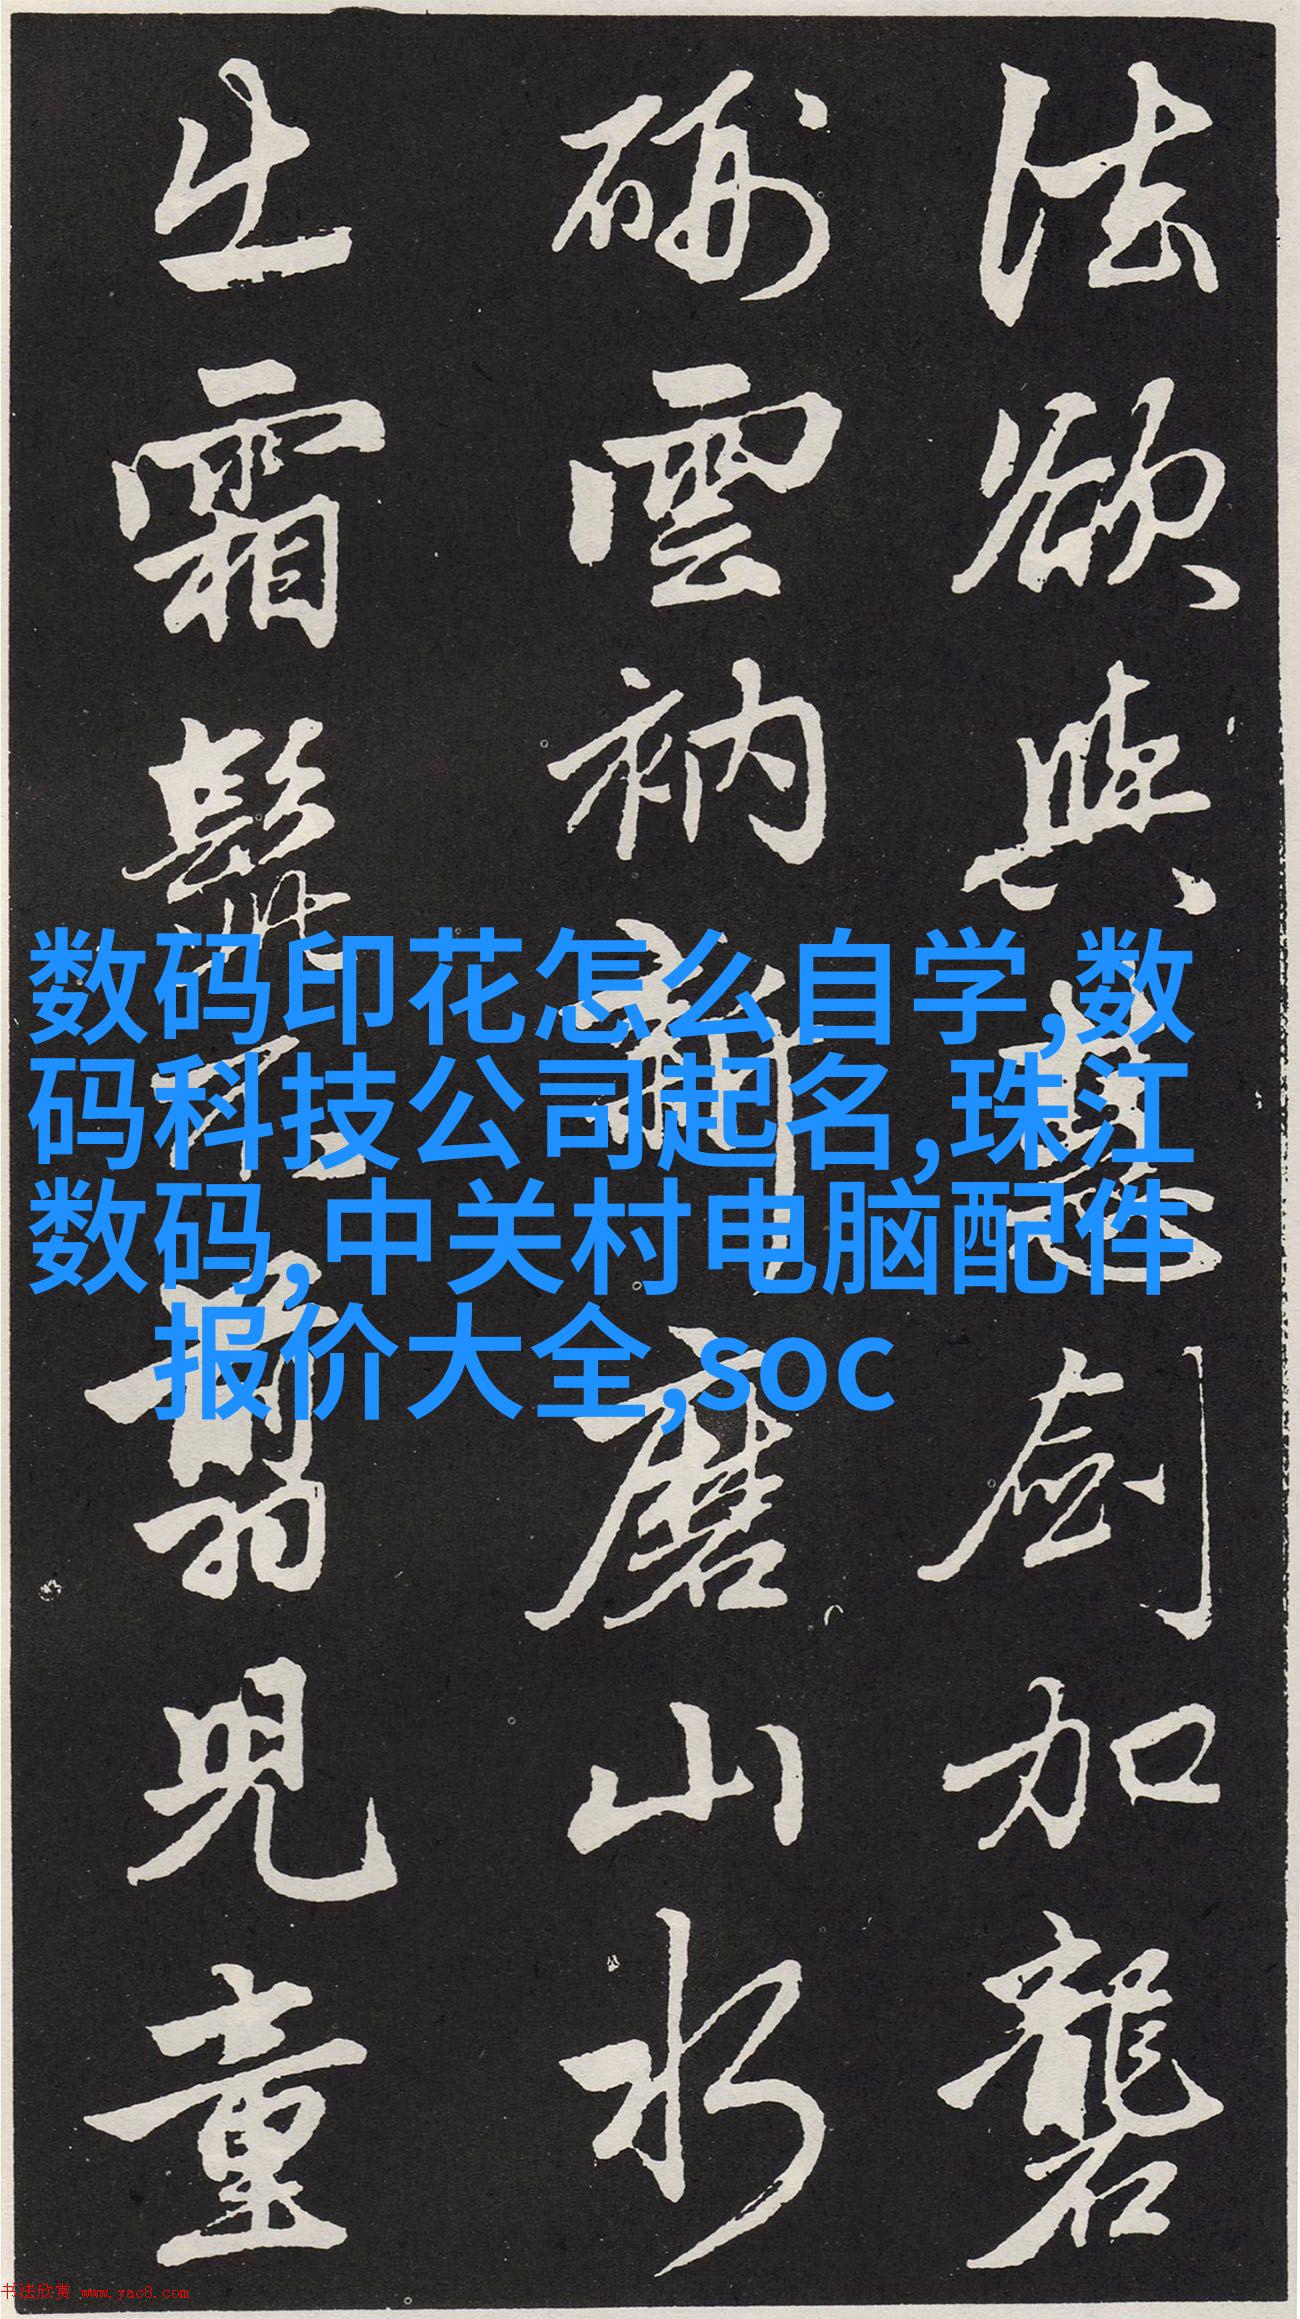 法欲與慧劍加礱
硎雲衲新磨山水
出霜髭不翦兒童
数码印花怎么自学,数
码科技公司起名,珠江
数码,中关村电脑配件
报价大全,soc
书法欣赏 www.yac8.com